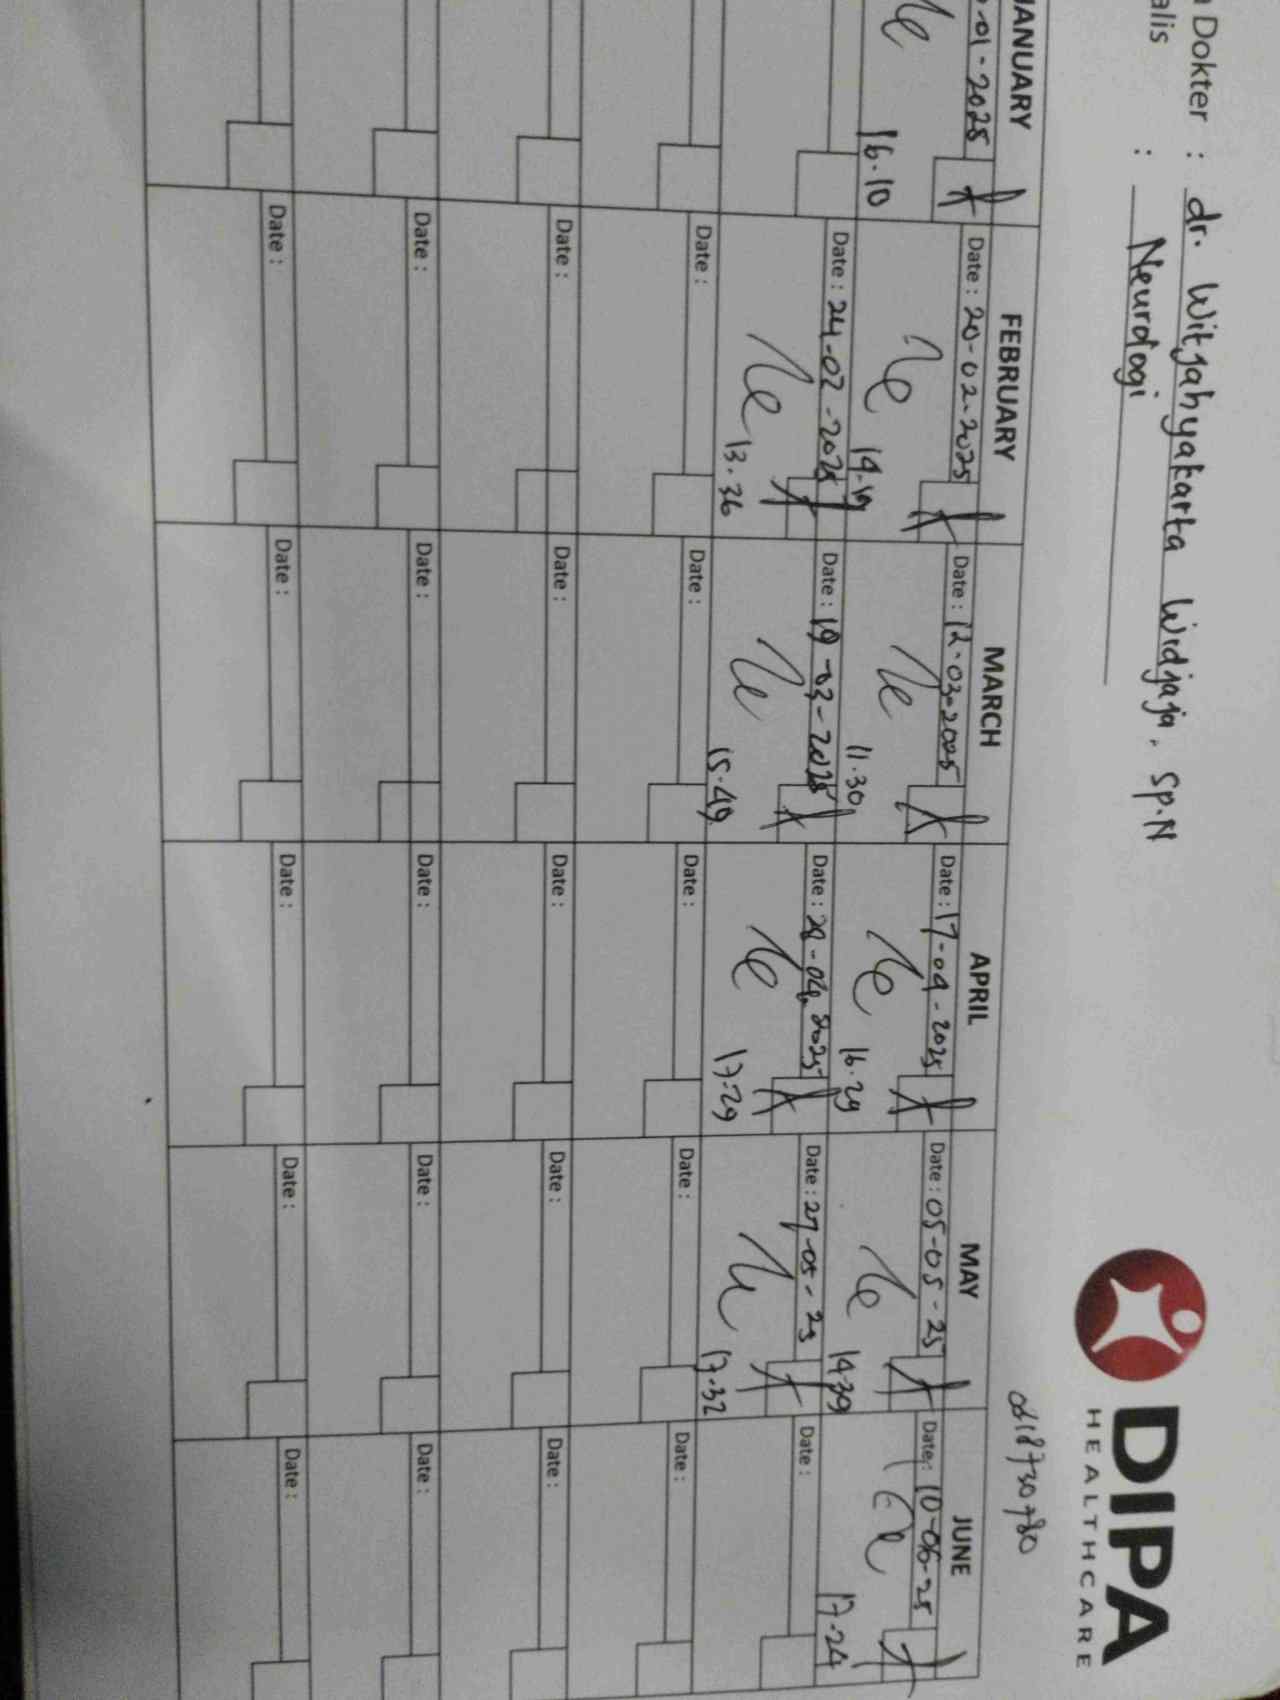 Dokter : dr. Witjahyakarta Widjaja. Sp.N
alis : Neurologi
DIPA
HEALTHCARE
JANUARY FEBRUARY MARCH APRIL MAY JUNE
-01-2025 Date : 20-02-2025 Date : 12-03-2025 Date : 17-04-2025 Date : 05-05-25 Date : 10-06-25
16.10 11.30 16.29 14.39 17.24
Date : 24-02-2025 Date : 19-03-2025 Date : 28-04-2025 Date : 27-05-25 Date :
13.36 15.49 17.29 17.32
Date : Date : Date : Date : Date :
Date : Date : Date : Date : Date :
Date : Date : Date : Date : Date :
Date : Date : Date : Date : Date :